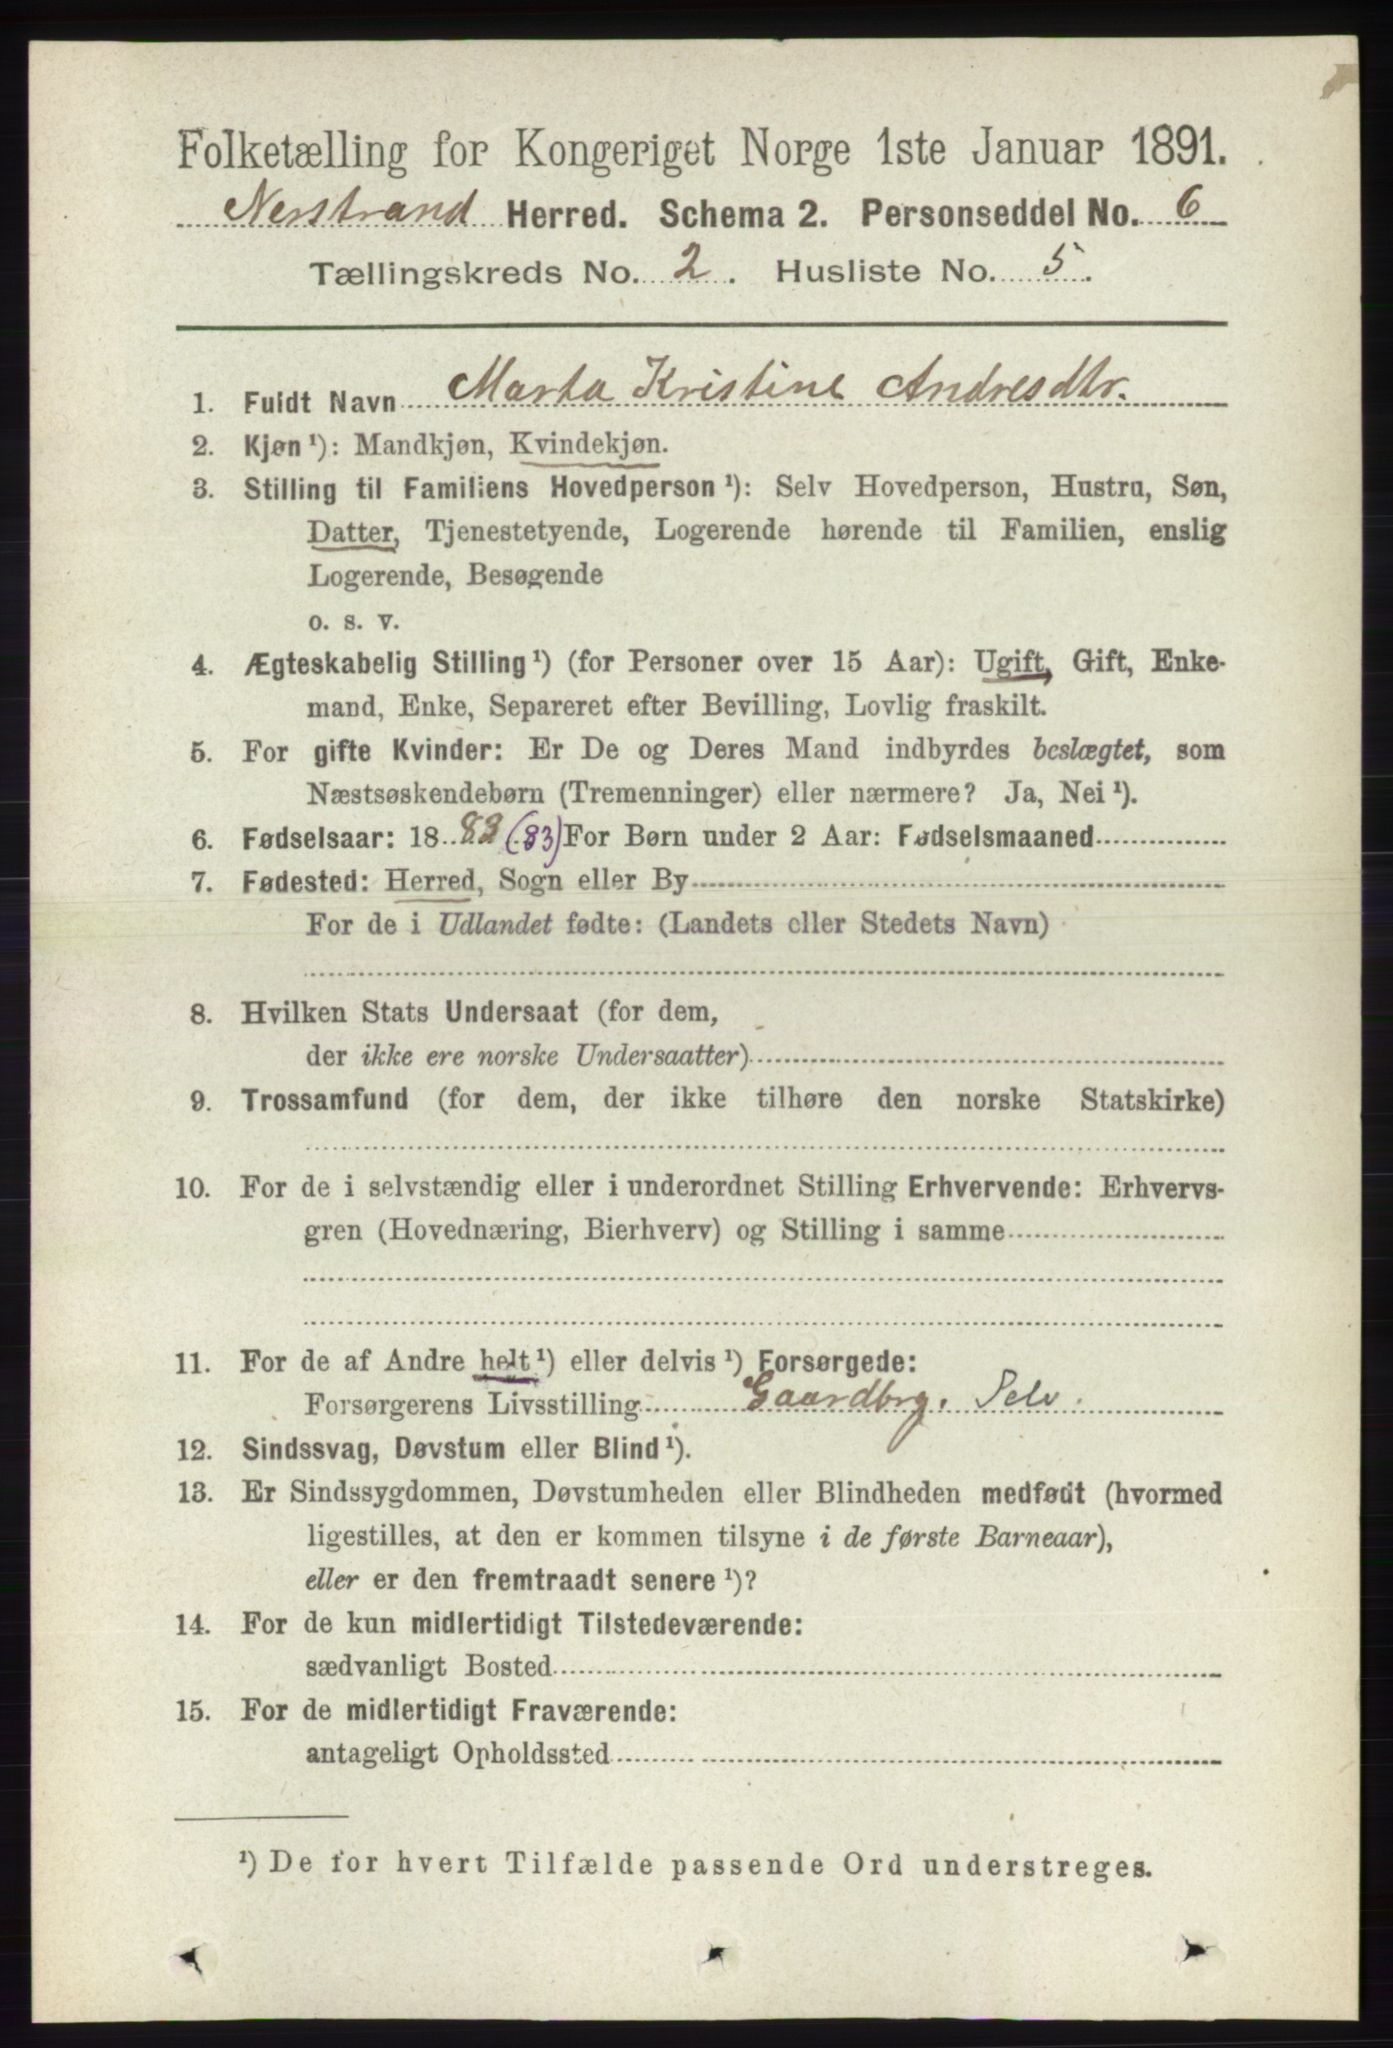 Folketælling for Kongeriget Norge 1ste Januar 1891.
Nerstrand Herred. Schema 2. Personseddel No. 6
Tællingskreds No. 2. Husliste No. 5.
1. Fuldt Navn Marta Kristine Andresdtr.
2. Kjøn ¹): Mandkjøn, Kvindekjøn.
3. Stilling til Familiens Hovedperson ¹): Selv Hovedperson, Hustru, Søn,
Datter, Tjenestetyende, Logerende hørende til Familien, enslig
Logerende, Besøgende
o. s. v.
4. Ægteskabelig Stilling ¹) (for Personer over 15 Aar): Ugift, Gift, Enke-
mand, Enke, Separeret efter Bevilling, Lovlig fraskilt.
5. For gifte Kvinder: Er De og Deres Mand indbyrdes beslægtet, som
Næstsøskendebørn (Tremenninger) eller nærmere? Ja, Nei ¹).
6. Fødselsaar: 18 (83) For Børn under 2 Aar: Fødselsmaaned
7. Fødested: Herred, Sogn eller By
For de i Udlandet fødte: (Landets eller Stedets Navn)
8. Hvilken Stats Undersaat (for dem,
der ikke ere norske Undersaatter)
9. Trossamfund (for dem, der ikke tilhøre den norske Statskirke)
10. For de i selvstændig eller i underordnet Stilling Erhvervende: Erhvervs-
gren (Hovednæring, Bierhverv) og Stilling i samme
11. For de af Andre helt ¹) eller delvis ¹) Forsørgede:
Forsørgerens Livsstilling Gaardbrg. Selv.
12. Sindssvag, Døvstum eller Blind ¹).
13. Er Sindssygdommen, Døvstumheden eller Blindheden medfødt (hvormed
ligestilles, at den er kommen tilsyne i de første Barneaar),
eller er den fremtraadt senere ¹)?
14. For de kun midlertidigt Tilstedeværende:
sædvanligt Bosted
15. For de midlertidigt Fraværende:
antageligt Opholdssted
¹) De for hvert Tilfælde passende Ord understreges.